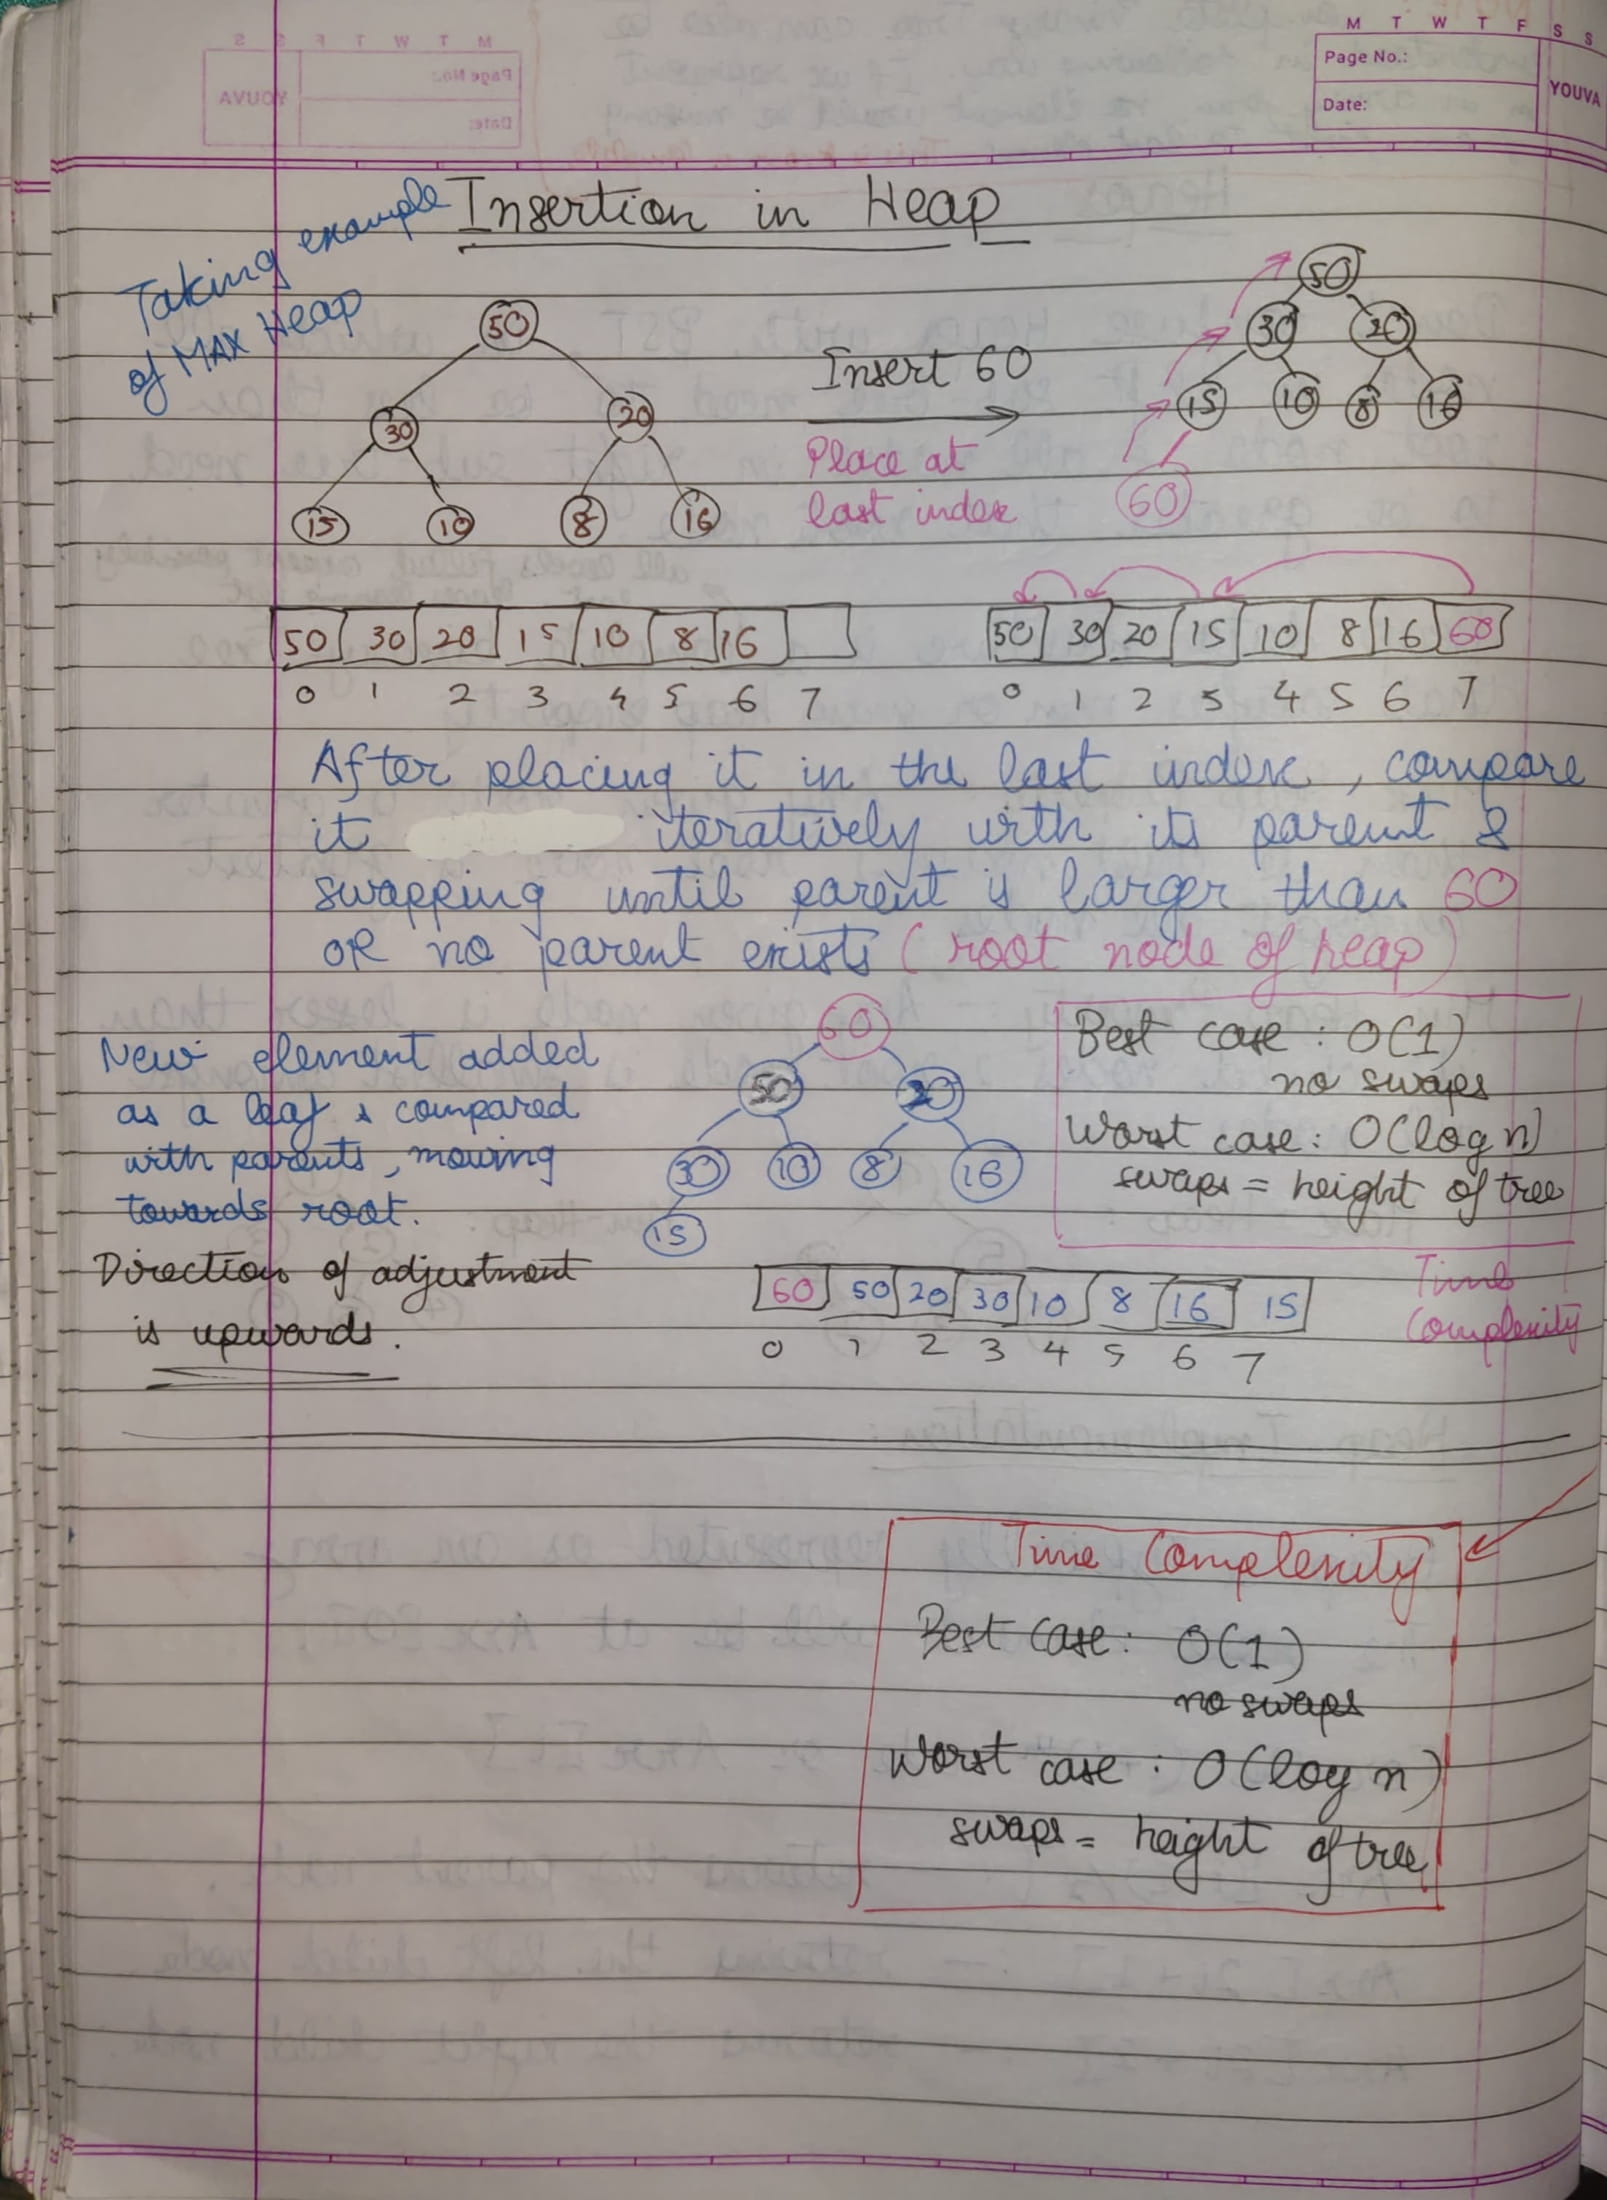 M T W T F S S
Page No.:
Date:
YOUVA
Insertion in Heap
Taking example
of MAX Heap
50
30 20
15 10 8 16
Insert 60
Place at
last index
50
30 20
15 10 8 16
60
50 30 20 15 10 8 16
0 1 2 3 4 5 6 7
50 30 20 15 10 8 16 60
0 1 2 3 4 5 6 7
After placing it in the last index, compare
it iteratively with its parent &
swapping until parent is larger than 60
OR no parent exists (root node of heap)
New element added
as a leaf & compared
with parents, moving
towards root.
Direction of adjustment
is upwards.
60
50 20
30 10 8 16
15
60 50 20 30 10 8 16 15
0 1 2 3 4 5 6 7
Best case : O(1)
no swaps
Worst case : O(log n)
swaps = height of tree
Time
Complexity
Time Complexity
Best case : O(1)
no swaps
Worst case : O(log n)
swaps = height of tree